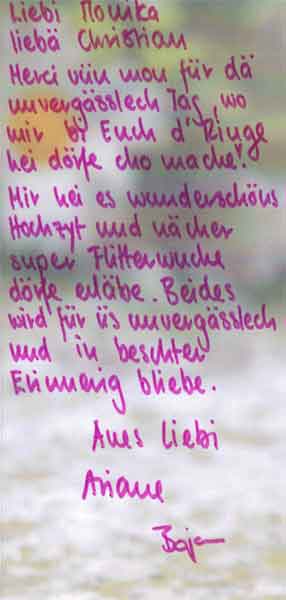 Liebi Monika
liebä Christian
Merci vüu mou für dä
unvergässlech Tag, wo
mir by Euch d' Ringe
hei dörfe cho mache!
Mir hei es wunderschöns
Hochzyt und nächer
super Flitterwuche
dörfe erläbe. Beides
wird für üs unvergässlech
und in beschter
Erinnerig bliebe.
Aues Liebi
Ariane